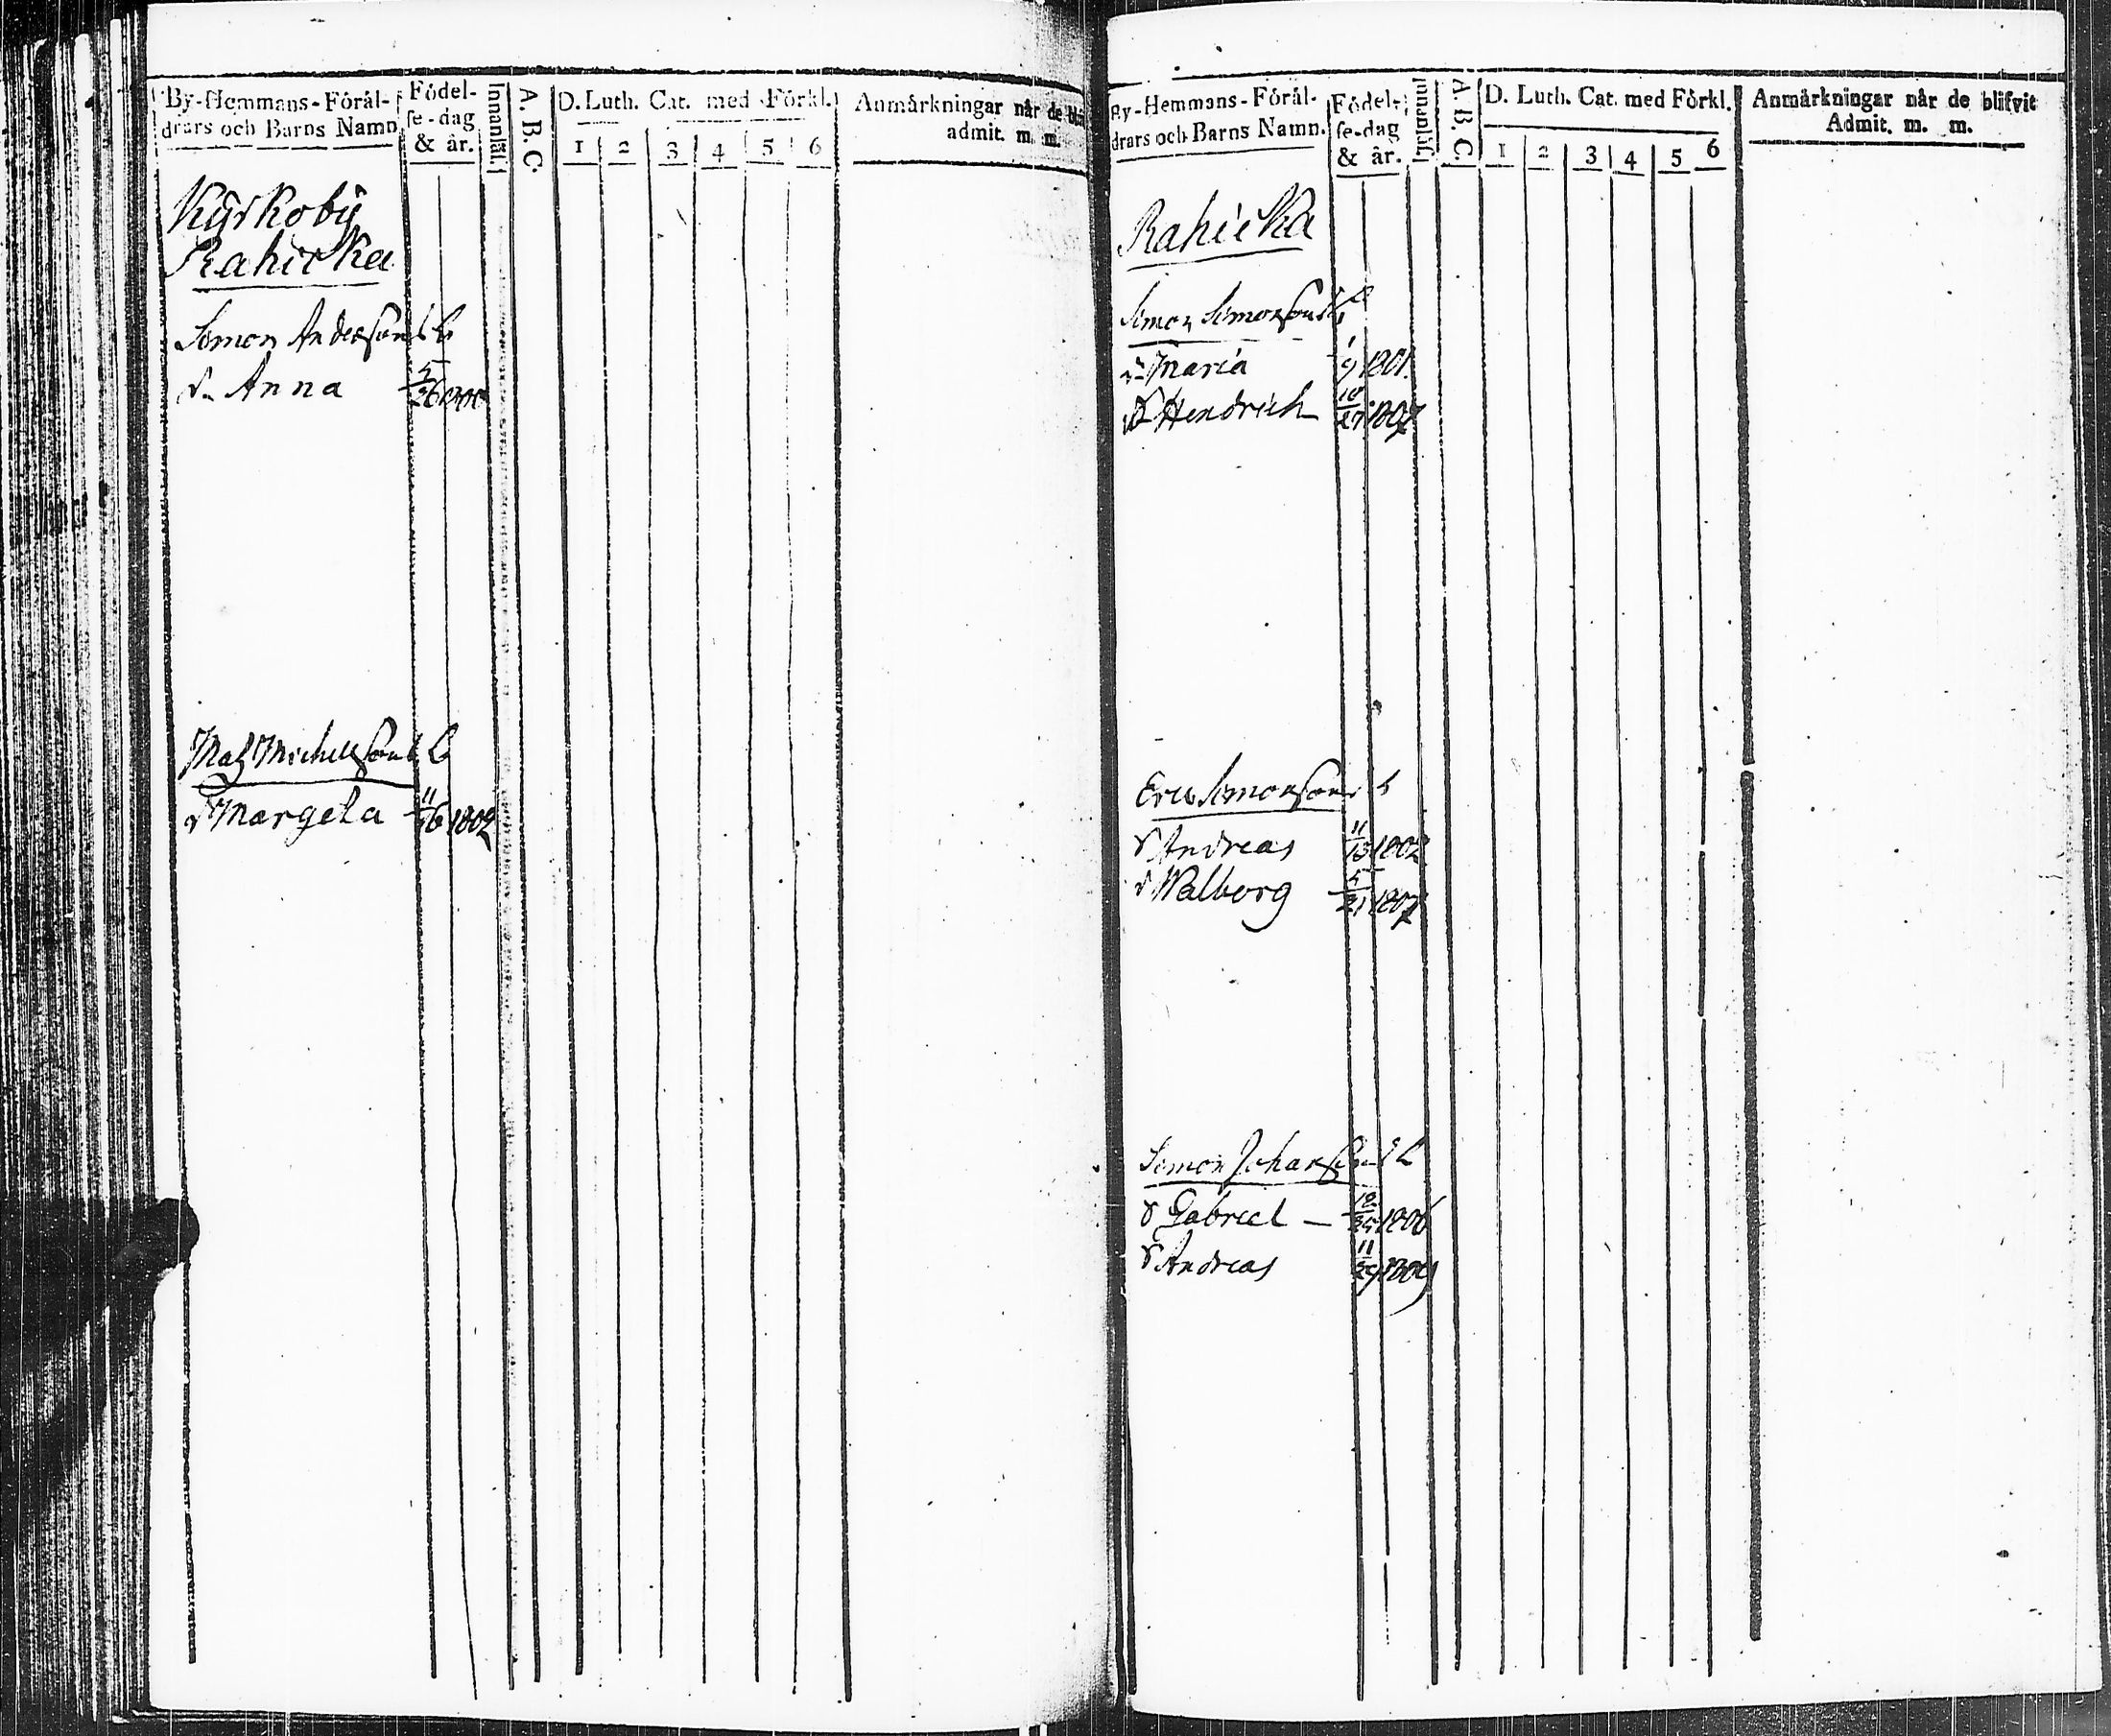 By-Hemmans-Förål-
drars och Barns Namn
Födel-
se-dag
& år.
Innanläs.
A. B. C.
D. Luth. Cat. med Förkl.
1 2 3 4 5 6
Anmärkningar når de
admit. m. m.
Kyrkoby
Rahicka
Simon Andersons b
d. Anna 5/26
Mats Michelsons b
d Margeta 11/16 1802
By-Hemmans-Förål-
drars och Barns Namn.
Födel-
se-dag
& år.
Innanläs.
A. B. C.
D. Luth. Cat. med Förkl.
1 2 3 4 5 6
Anmärkningar når de blifvit
Admit. m. m.
Rahicka
Simon Simonsons b
d. Maria 1/9 1801.
d Hendrich 10/27 1807
Eric Simonsons b
d Andreas 11/13 1802
d Walborg 5/21 1807
Simon Johansons b
d Gabriel — 1806
d Andreas 11/29 1809